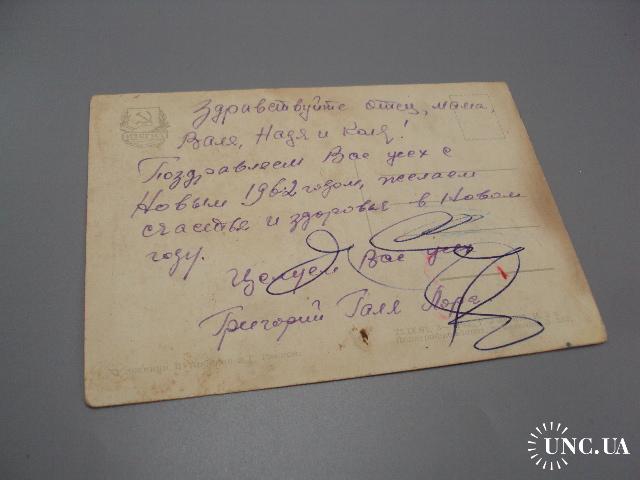 Здравствуйте отец, мама,
Валя, Надя и Коля!
Поздравляем Вас всех с
Новым 1962 годом, желаем
счастья и здоровья в Новом
году.
Целуем Вас всех
Григорий Галя Лора
UNC.UA